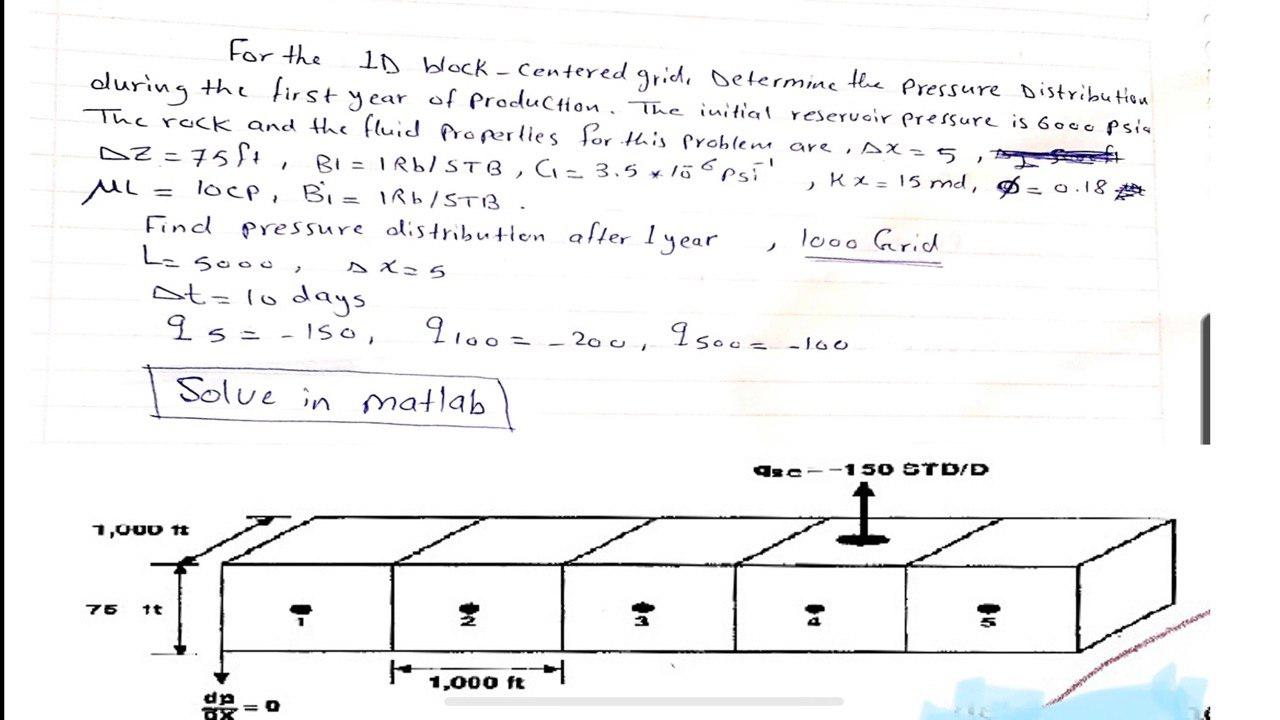 For the 1D block-centered grid. Determine the Pressure Distribution
during the first year of production. The initial reservoir pressure is 6000 psia
The rock and the fluid properties for this problem are, Δx = 5,
ΔZ = 75 ft, Bl = 1Rb/STB, Cl = 3.5 * 10^-6 psi^-1, Kx = 15 md, Ø = 0.18
μL = 10cp, Bi = 1Rb/STB.
Find pressure distribution after 1 year, 1000 Grid
L= 5000, Δx = 5
Δt = 10 days
q5 = -150, q100 = -200, q500 = -100
Solve in matlab
qsc--150 STD/D
1,000 ft
75 ft
1 2 3 4 5
1,000 ft
dp/dx = 0